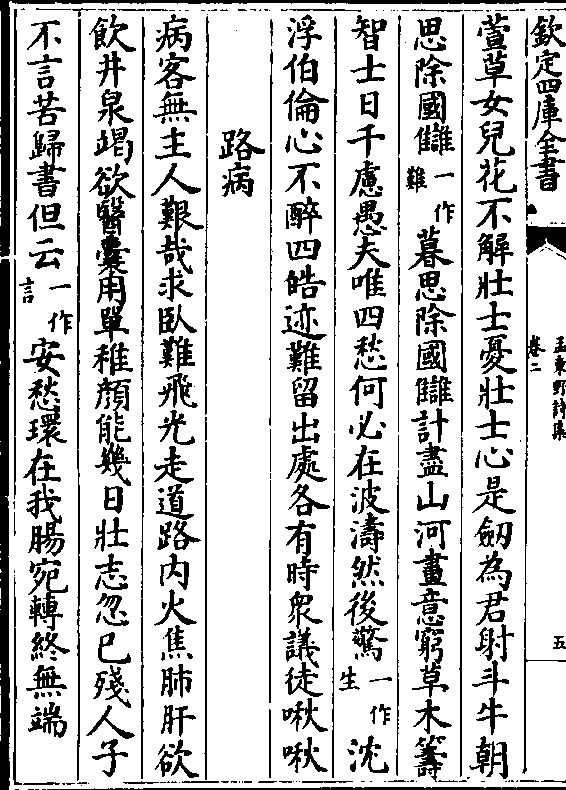 欽定四庫全書
孟東野詩集
卷二
五
萱草女兒花不解壯士憂壯士心是劒為君射斗牛朝
思除國讎一作難暮思除國讎計盡山河畫意窮草木籌
智士日千慮愚夫唯四愁何必在波濤然後驚一作生沈
浮伯倫心不醉四皓迹難留出處各有時衆議徒啾啾
路病
病客無主人艱哉求臥難飛光走道路内火焦肺肝欲
飲井泉竭欲醫囊用單稚顔能幾日壯志忽已殘人子
不言苦歸書但云一作言安愁環在我腸宛轉終無端